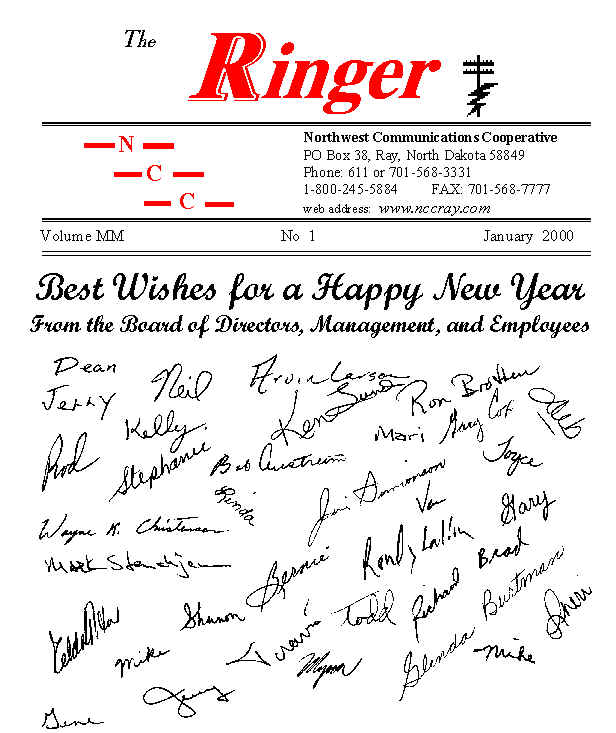 The
Ringer
N
C
C
Northwest Communications Cooperative
PO Box 38, Ray, North Dakota 58849
Phone: 611 or 701-568-3331
1-800-245-5884 FAX: 701-568-7777
web address: www.nccray.com
Volume MM No 1 January 2000
Best Wishes for a Happy New Year
From the Board of Directors, Management, and Employees
Dean
Jerry Neil Arvin Larson
Ken Ron
Rod Kelly Mari Gary Cox Deb
Stephanie Bob Joyce
Linda Jori Simonson
Wayne R. Christenson Van Gary
Mark Bernie Randy Brad
Shannon Todd Richard Glenda Burtman Sheri
Mike Travis Myron Mike
Jerry
Gene